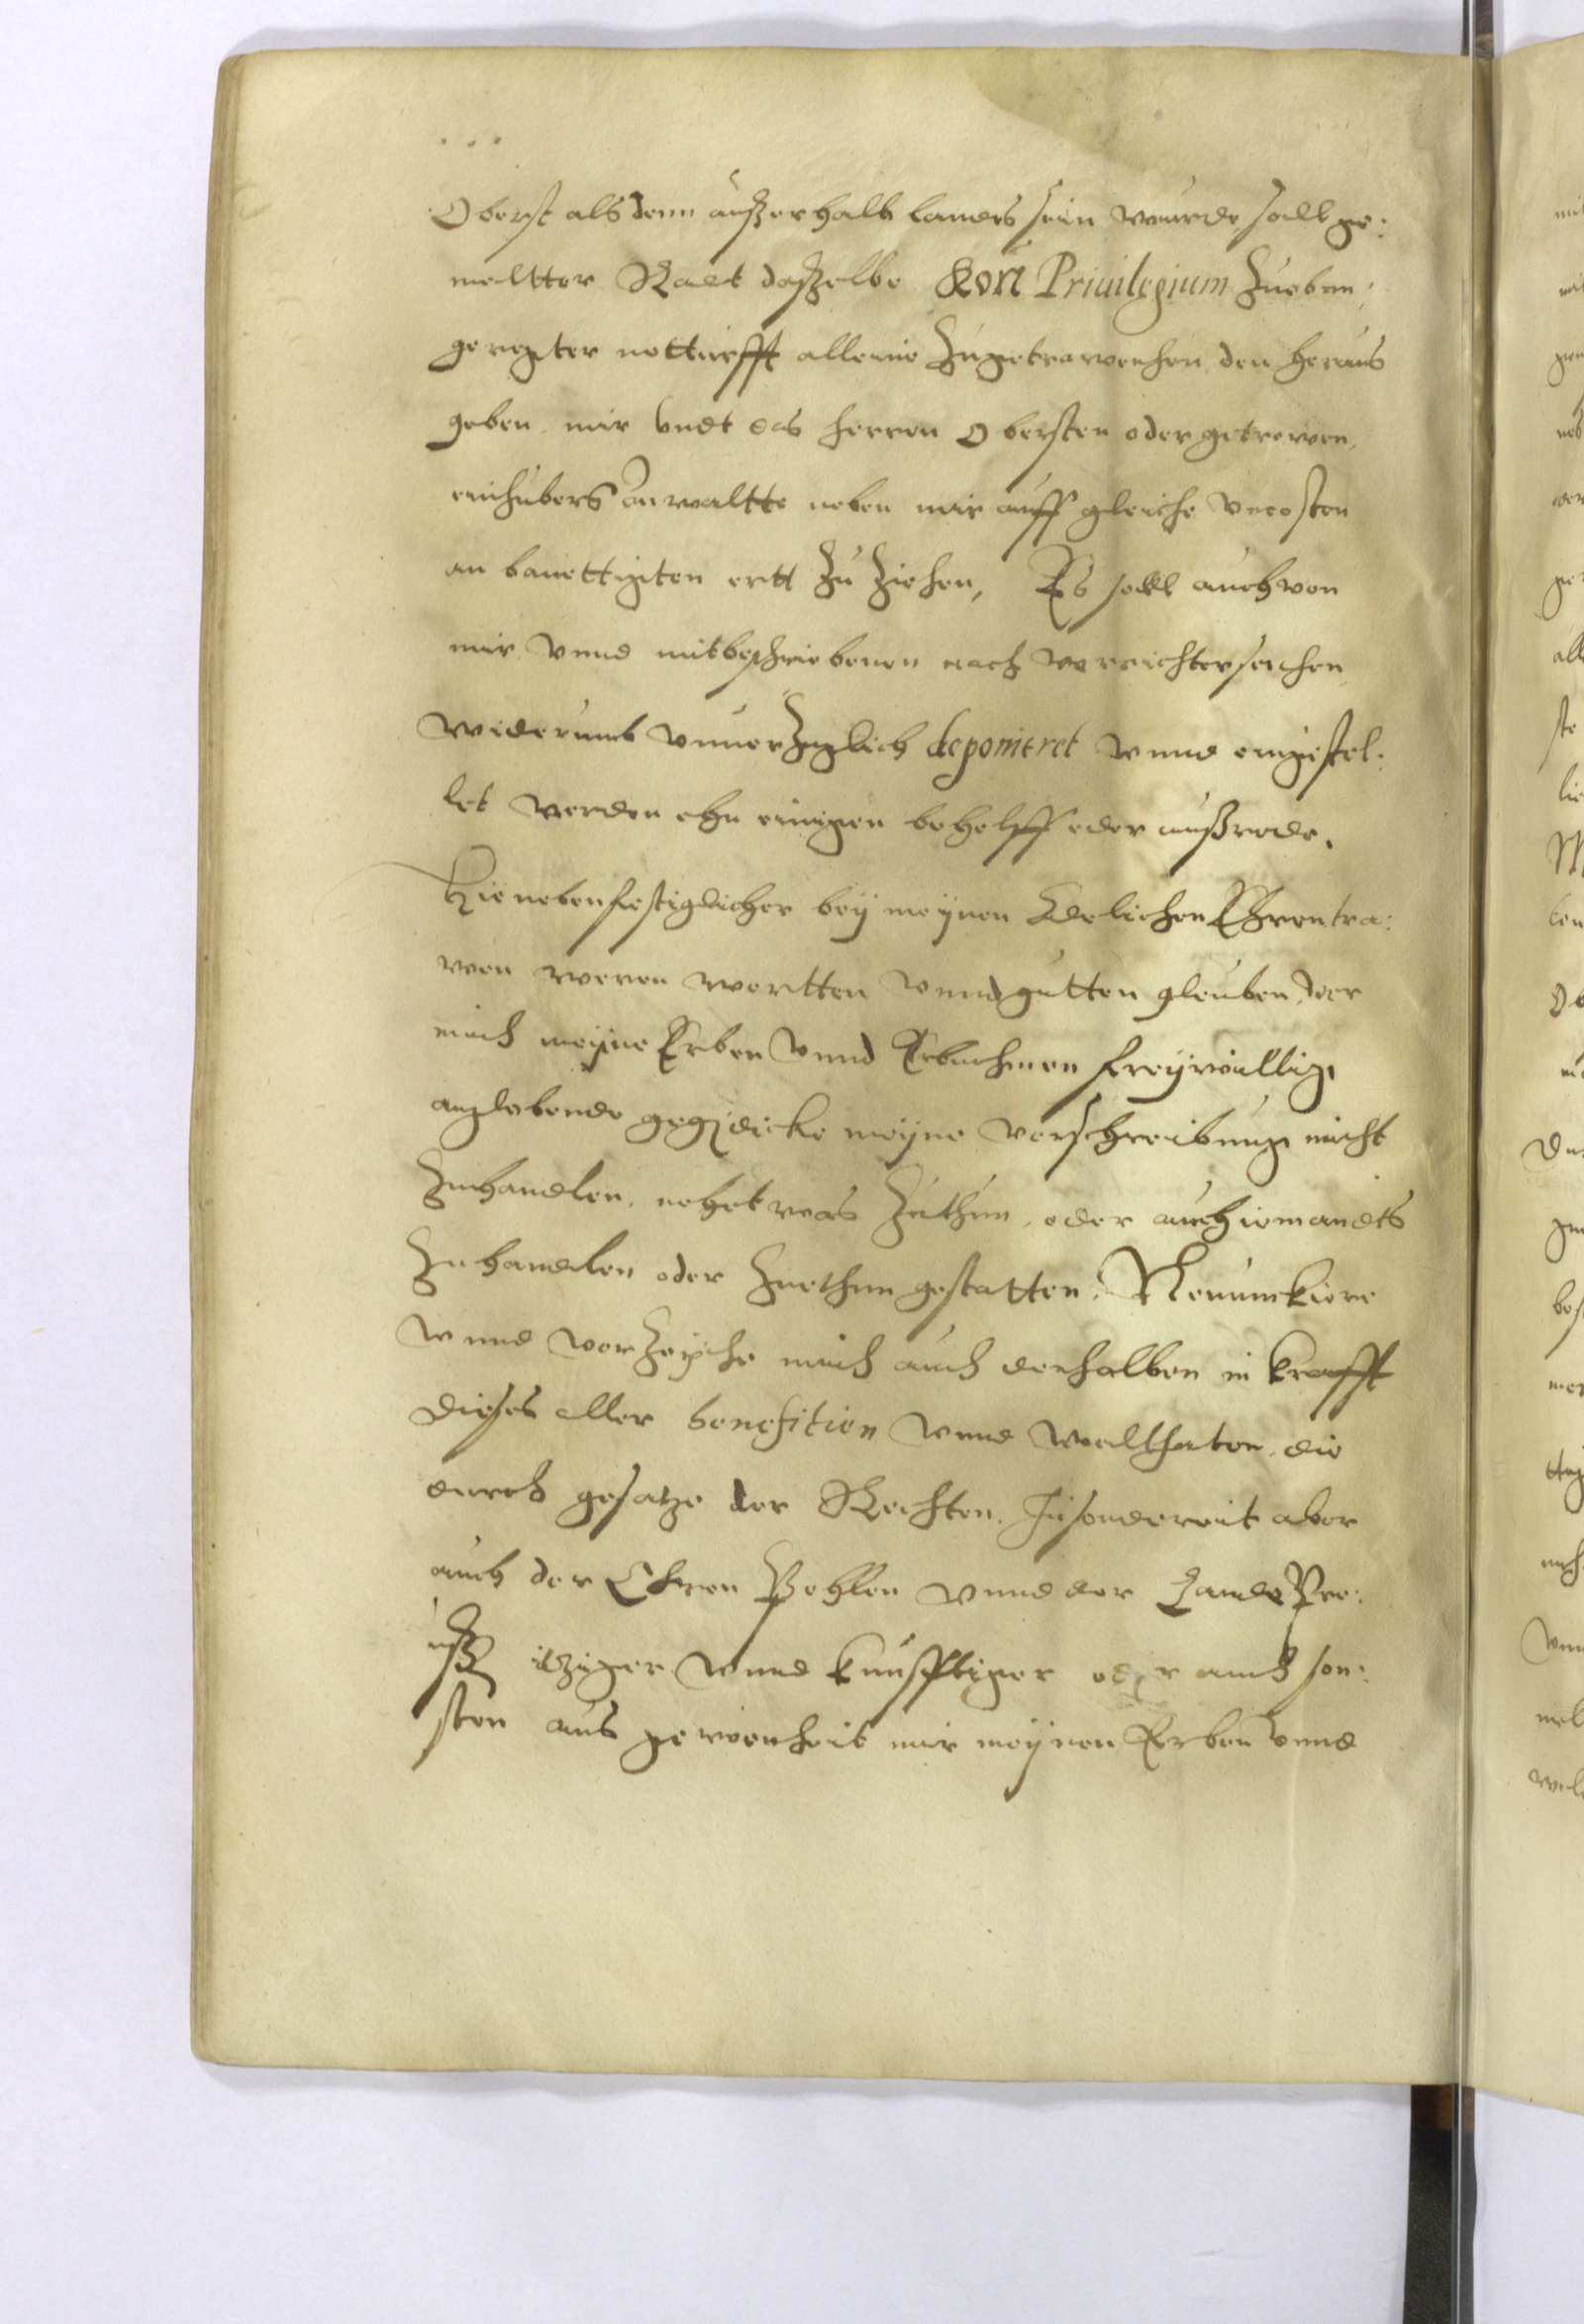 Oberst alsdenn außerhalb landes sein wurde soll ge:
meltter Radt daßelbe Kön Priuilegium Zu oban:
geregter notturfft alleine heraus
geben. mir vndt des herren Obersten oder getrewen,
einhabers anwaltte neben mir auff gleiche vncosten
an benottigten ortt Zu Ziehen, Es soll auch von
mir vnnd mitbeschriebenen nach vorrichter sachen
widerumb vnuerzuglich deponieret vnnd eingestel:
let werden ohn einigen behelff oder außrede.
Hieneben festiglicher bey meynen Adelichen Ehren tra:
wen waren wortten vnnd gutten glauben, vor
mich meyne Erben vnnd Erbnehmen freywillig
anglobende gegen dicke meyne vorschreibung nicht
Zuhandlen, noh etwas Zuthun, oder auch iemandts
Zuhandlen oder Zuethun gestatten. Renunctiere
vnnd vorzeyche mich auch derhalben in krafft
dieses aller benefitien vnnd wolthaten, die
durch gesatze der Rechten. Insonderheit aber
auch der Chron Pohlen vnnd der Lande Pre:
uß itziger vnnd kunfftiger oder auch son:
sten aus gewonheit mir meynen Erben vnnd